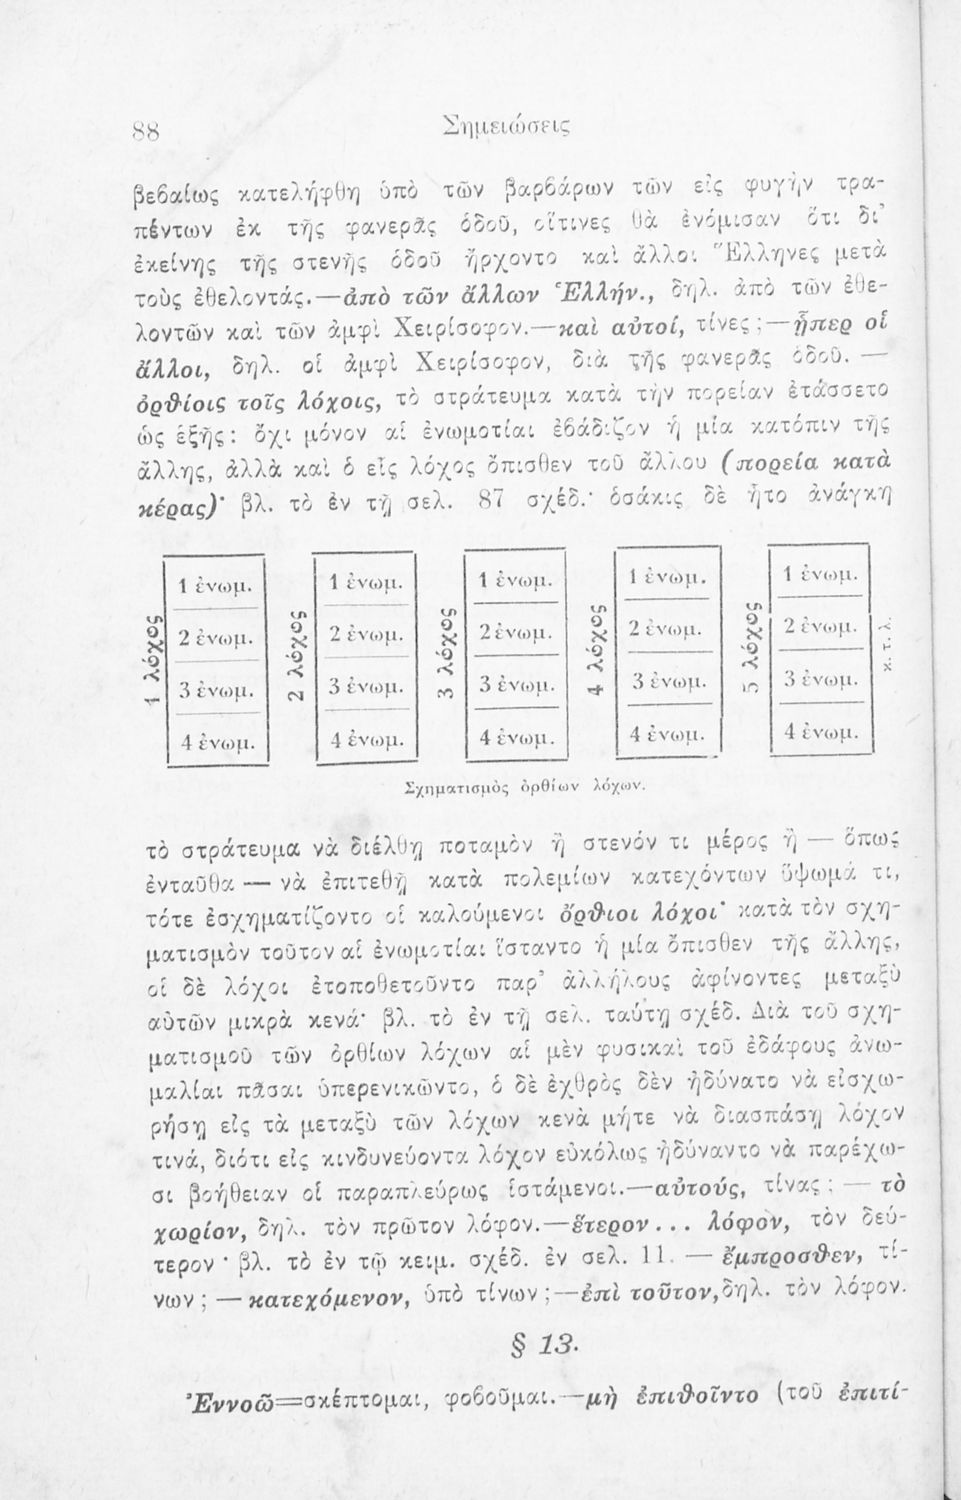 88 Σημειώσεις
βεβαίως κατελήφθη ὑπὸ τῶν βαρβάρων τῶν εἰς φυγὴν τρα-
πέντων ἐκ τῆς φανερᾶς ὁδοῦ, οἵτινες θὰ ἐνόμισαν ὅτι δι’
ἐκείνης τῆς στενῆς ὁδοῦ ἤρχοντο καὶ ἄλλοι Ἕλληνες μετὰ
τοὺς ἐθελοντάς.—ἀπὸ τῶν ἄλλων Ἑλλήν., δηλ. ἀπὸ τῶν ἐθε-
λοντῶν καὶ τῶν ἀμφὶ Χειρίσοφον.—καὶ αὐτοί, τίνες ;—ᾗπερ οἱ
ἄλλοι, δηλ. οἱ ἀμφὶ Χειρίσοφον, διὰ τῆς φανερᾶς ὁδοῦ. —
ὀρθίοις τοῖς λόχοις, τὸ στράτευμα κατὰ τὴν πορείαν ἐτάσσετο
ὡς ἑξῆς: ὄχι μόνον αἱ ἐνωμοτίαι ἐβάδιζον ἡ μία κατόπιν τῆς
ἄλλης, ἀλλὰ καὶ ὁ εἷς λόχος ὄπισθεν τοῦ ἄλλου (πορεία κατὰ
κέρας)· βλ. τὸ ἐν τῇ σελ. 87 σχέδ.· ὁσάκις δὲ ἦτο ἀνάγκη
1 λόχος
1 ἐνωμ.
2 ἐνωμ.
3 ἐνωμ.
4 ἐνωμ.
2 λόχος
1 ἐνωμ.
2 ἐνωμ.
3 ἐνωμ.
4 ἐνωμ.
3 λόχος
1 ἐνωμ.
2 ἐνωμ.
3 ἐνωμ.
4 ἐνωμ.
4 λόχος
1 ἐνωμ.
2 ἐνωμ.
3 ἐνωμ.
4 ἐνωμ.
5 λόχος
1 ἐνωμ.
2 ἐνωμ.
3 ἐνωμ.
4 ἐνωμ.
κ. τ. λ.
Σχηματισμὸς ὀρθίων λόχων.
τὸ στράτευμα νὰ διέλθῃ ποταμὸν ἢ στενόν τι μέρος ἢ — ὅπως
ἐνταῦθα — νὰ ἐπιτεθῇ κατὰ πολεμίων κατεχόντων ὕψωμά τι,
τότε ἐσχηματίζοντο οἱ καλούμενοι ὄρθιοι λόχοι· κατὰ τὸν σχη-
ματισμὸν τοῦτον αἱ ἐνωμοτίαι ἵσταντο ἡ μία ὄπισθεν τῆς ἄλλης,
οἱ δὲ λόχοι ἐτοποθετοῦντο παρ’ ἀλλήλους ἀφίνοντες μεταξὺ
αὑτῶν μικρὰ κενά· βλ. τὸ ἐν τῇ σελ. ταύτῃ σχέδ. Διὰ τοῦ σχη-
ματισμοῦ τῶν ὀρθίων λόχων αἱ μὲν φυσικαὶ τοῦ ἐδάφους ἀνω-
μαλίαι πᾶσαι ὑπερενικῶντο, ὁ δὲ ἐχθρὸς δὲν ἠδύνατο νὰ εἰσχω-
ρήσῃ εἰς τὰ μεταξὺ τῶν λόχων κενὰ μήτε νὰ διασπάσῃ λόχον
τινά, διότι εἰς κινδυνεύοντα λόχον εὐκόλως ἠδύναντο νὰ παρέχω-
σι βοήθειαν οἱ παραπλεύρως ἱστάμενοι.—αὐτούς, τίνας ; — τὸ
χωρίον, δηλ. τὸν πρῶτον λόφον.—ἕτερον... λόφον, τὸν δεύ-
τερον · βλ. τὸ ἐν τῷ κειμ. σχέδ. ἐν σελ. 11. — ἔμπροσθεν, τί-
νων ; — κατεχόμενον, ὑπὸ τίνων ;—ἐπὶ τοῦτον, δηλ. τὸν λόφον.
§ 13.
Ἐννοῶ=σκέπτομαι, φοβοῦμαι.—μὴ ἐπιθοῖντο (τοῦ ἐπιτί-